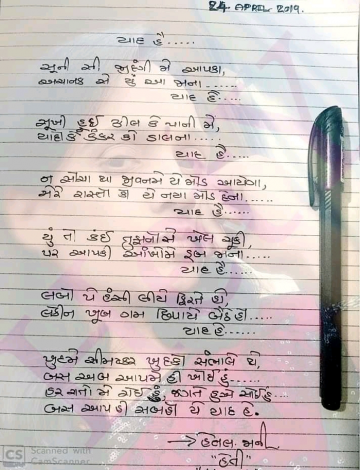 24 APRIL 2019.
યાદ હૈ......
સૂની સી જીંદગી મે આપકા,
અચાનક સે યું આ જાના.....
યાદ હૈ.....
સૂખી હુઈ ઝીલ કે પાની મે,
યાદો કે કંકર કો ડાલના......
યાદ હૈ......
ન સોચા થા જીવનમે યે મોડ આયેગા,
મેરે રાસ્તો કા યે નયા મોડ હોના......
યાદ હૈ.....
યું તો કઈ તુફાનો સે ખેલ ચૂકી,
પર આપકી આંખોમે ડૂબ જાના....
યાદ હૈ.....
લબો પે હંસી લીયે ફિરતે હો,
લેકીન ખૂબ ગમ છિપાયે બેઠે હો.....
યાદ હૈ.....
ખુદમે સીમટકર ખુદકો સંભાલે થે,
બસ અબ આપમે હી ખોઈ હું......
હર રાતો મે રોઈ હું, જગતે હુએ સોઈ હું...
બસ આપકી સબકી યે યાદ હૈ.
હેતલ. જાની
"હેતી"
CS Scanned with
CamScanner